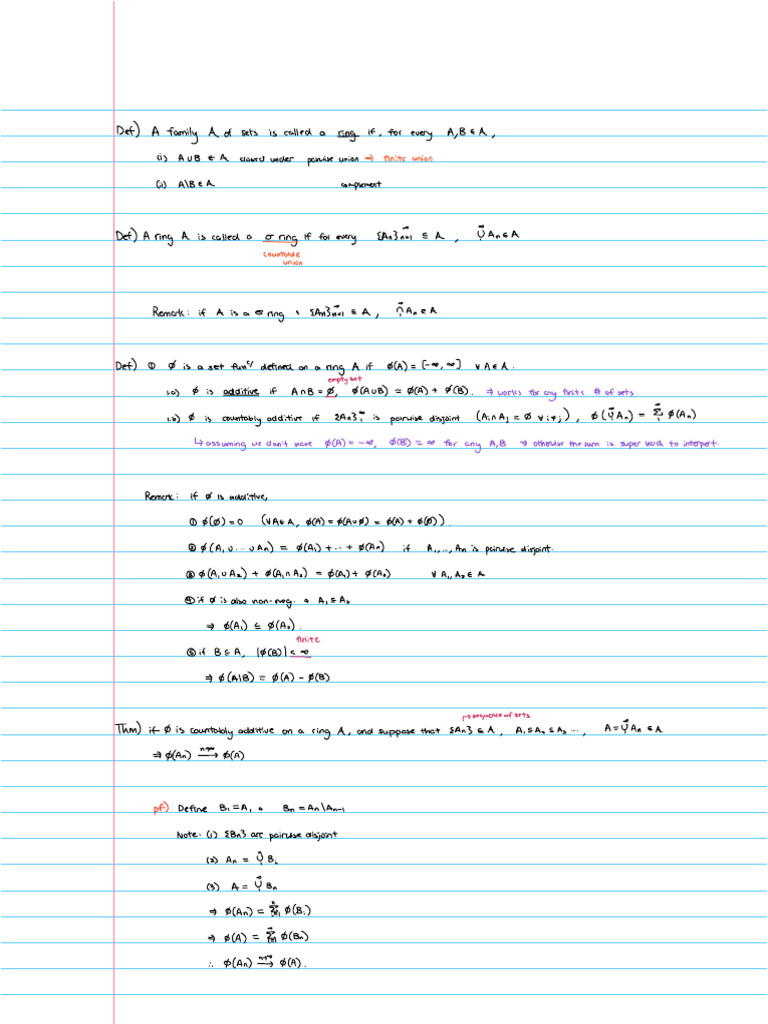 Def) A family A of sets is called a ring if, for every A,B ∈ A,
(i) A∪B ∈ A closed under pairwise union → finite union
(i) A\B ∈ A complement
Def) A ring A is called a σ ring if for every {An}∞n=1 ⊆ A, ∞∪1 An ∈ A
countable
union
Remark: if A is a σ ring & {An}∞n=1 ⊆ A, ∞∩1 An ∈ A
Def) ① ϕ is a set funcⁿ defined on a ring A if ϕ(A) = [-∞, ∞] ∀A∈A.
empty set
1.a) ϕ is additive if A∩B = ∅, ϕ(A∪B) = ϕ(A) + ϕ(B). → works for any finite # of sets.
1.b) ϕ is countably additive if {An}∞1 is pairwise disjoint (Ai∩Aj = ∅ ∀ i≠j), ϕ(∞∪1 An) = ∞Σ1 ϕ(An)
↳ assuming we don't have ϕ(A) = -∞, ϕ(B) = ∞ for any A,B → otherwise the sum is super weird to interpret.
Remark: if ϕ is additive,
① ϕ(∅) = 0 (∀A∈A, ϕ(A) = ϕ(A∪∅) = ϕ(A) + ϕ(∅)).
② ϕ(A1 ∪ ... ∪ An) = ϕ(A1) + ... + ϕ(An) if A1, ..., An is pairwise disjoint.
③ ϕ(A1∪A2) + ϕ(A1∩A2) = ϕ(A1) + ϕ(A2) ∀ A1, A2 ∈ A
④ if ϕ is also non-neg. & A1 ⊆ A2
⇒ ϕ(A1) ≤ ϕ(A2).
finite
⑤ if B ⊆ A, |ϕ(B)| < ∞
⇒ ϕ(A\B) = ϕ(A) - ϕ(B)
↱ sequence of sets
Thm) if ϕ is countably additive on a ring A, and suppose that {An} ⊆ A, A1 ⊆ A2 ⊆ A3 ..., A = ∞∪1 An ∈ A
⇒ ϕ(An) n→∞⟶ ϕ(A)
pf) Define B1 = A1 & Bn = An\An-1
Note: (1) {Bn} are pairwise disjoint
(2) An = n∪1 Bi
(3) A = ∞∪1 Bn
⇒ ϕ(An) = nΣi=1 ϕ(Bi)
⇒ ϕ(A) = ∞Σn=1 ϕ(Bn)
∴ ϕ(An) n→∞⟶ ϕ(A).